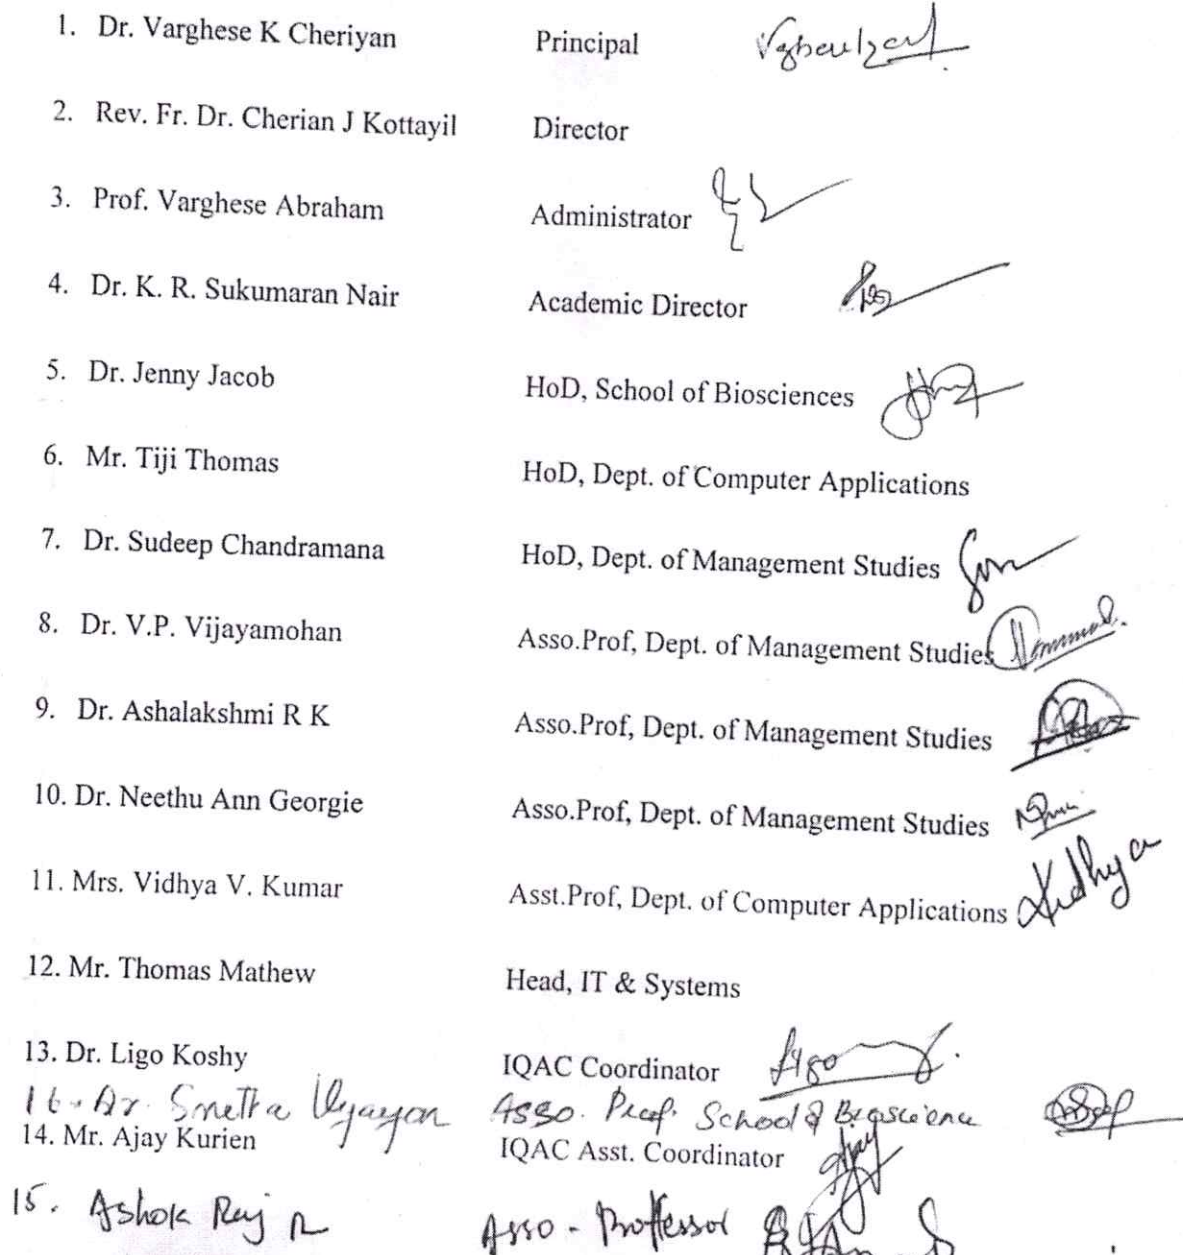 1. Dr. Varghese K Cheriyan Principal
2. Rev. Fr. Dr. Cherian J Kottayil Director
3. Prof. Varghese Abraham Administrator
4. Dr. K. R. Sukumaran Nair Academic Director
5. Dr. Jenny Jacob HoD, School of Biosciences
6. Mr. Tiji Thomas HoD, Dept. of Computer Applications
7. Dr. Sudeep Chandramana HoD, Dept. of Management Studies
8. Dr. V.P. Vijayamohan Asso.Prof, Dept. of Management Studies
9. Dr. Ashalakshmi R K Asso.Prof, Dept. of Management Studies
10. Dr. Neethu Ann Georgie Asso.Prof, Dept. of Management Studies
11. Mrs. Vidhya V. Kumar Asst.Prof, Dept. of Computer Applications Vidhya
12. Mr. Thomas Mathew Head, IT & Systems
13. Dr. Ligo Koshy IQAC Coordinator Ligo
16. Dr. Vijayan Asso. Prof. School of Bioscience
14. Mr. Ajay Kurien IQAC Asst. Coordinator Ajay
15. Ashok Raj R Asso - Proffessor